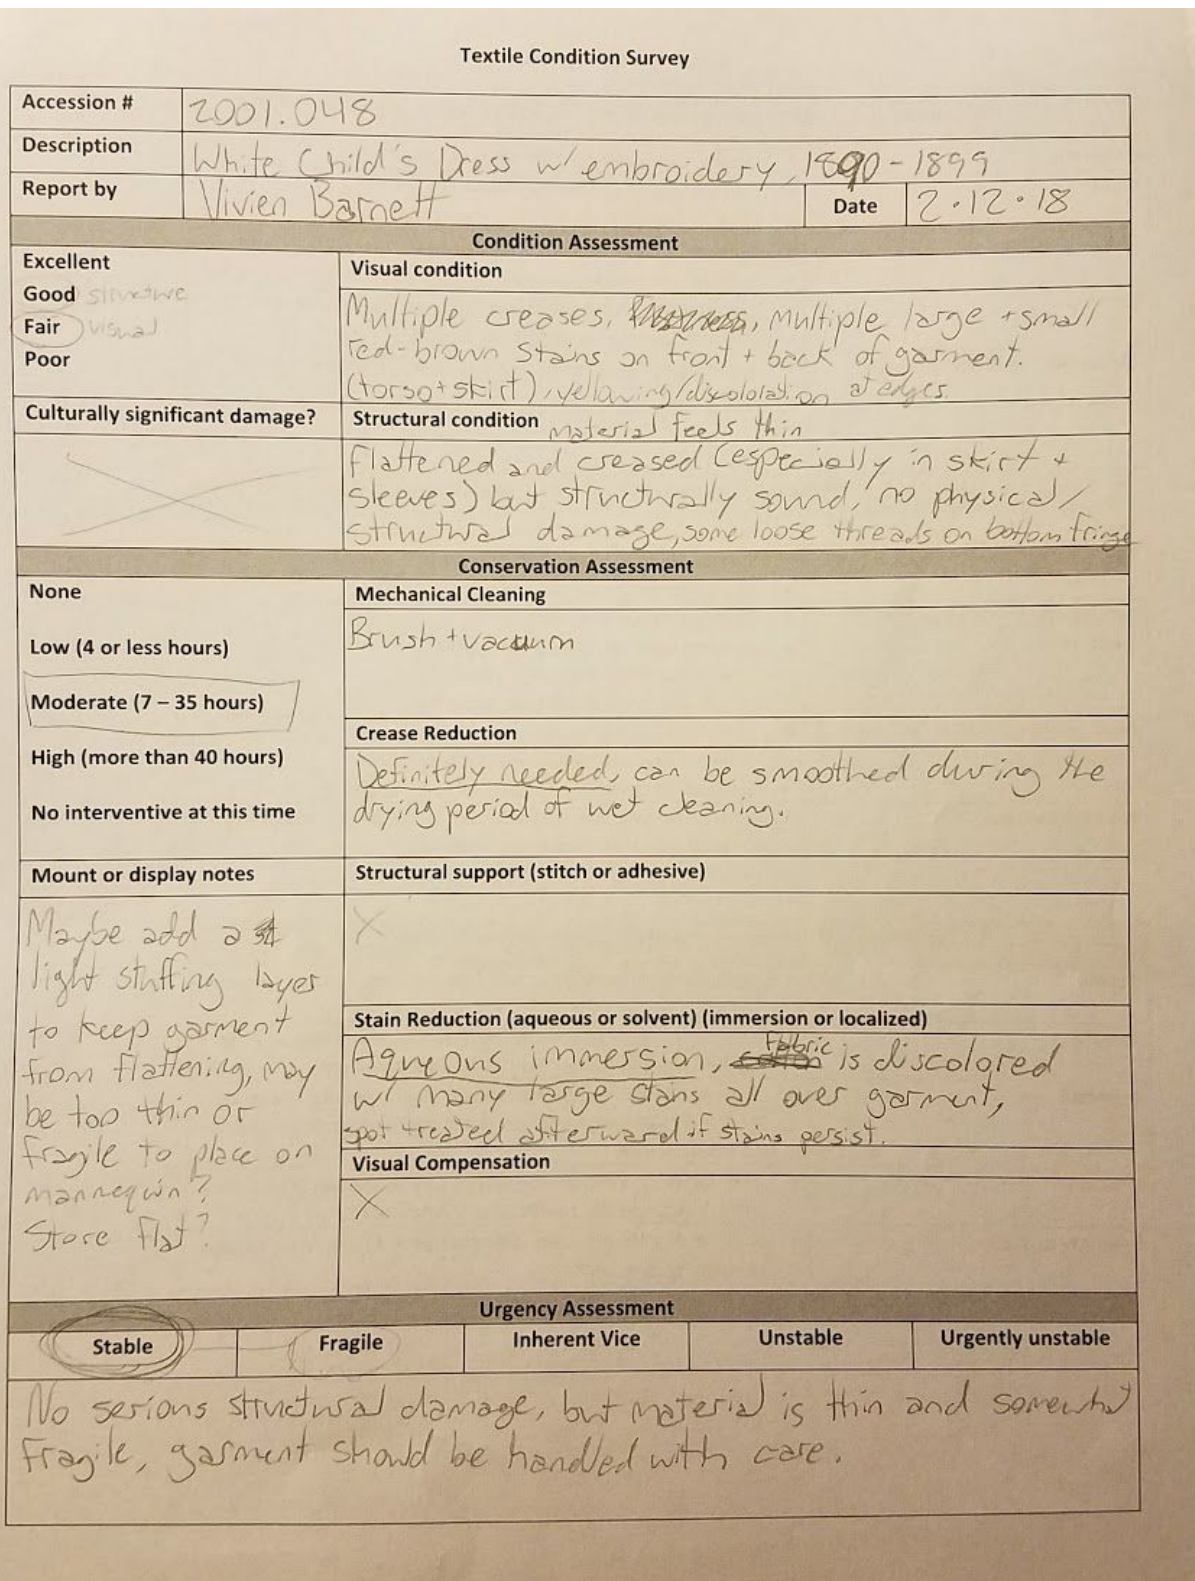 Textile Condition Survey
Accession # 2001.048
Description White Child's Dress w/ embroidery, 1890-1899
Report by Vivien Barnett Date 2·12·18
Condition Assessment
Excellent
Good structure
Fair visual
Poor
Visual condition
Multiple creases, multiple large + small
red-brown stains on front + back of garment.
(torso + skirt), yellowing/discololation at edges.
Culturally significant damage?
Structural condition material feels thin
Flattened and creased (especially in skirt +
sleeves) but structurally sound, no physical/
structural damage, some loose threads on bottom fringe
Conservation Assessment
None
Low (4 or less hours)
Moderate (7 – 35 hours)
High (more than 40 hours)
No interventive at this time
Mechanical Cleaning
Brush + vacuum
Crease Reduction
Definitely needed, can be smoothed during the
drying period of wet cleaning.
Mount or display notes
Maybe add a
light stuffing layer
to keep garment
from flattening, may
be too thin or
fragile to place on
mannequin?
Store flat?
Structural support (stitch or adhesive)
X
Stain Reduction (aqueous or solvent) (immersion or localized)
Aqueous immersion, Fabric is discolored
w/ many large stains all over garment,
spot treated afterward if stains persist.
Visual Compensation
X
Urgency Assessment
Stable Fragile Inherent Vice Unstable Urgently unstable
No serious structural damage, but material is thin and somewhat
fragile, garment should be handled with care.